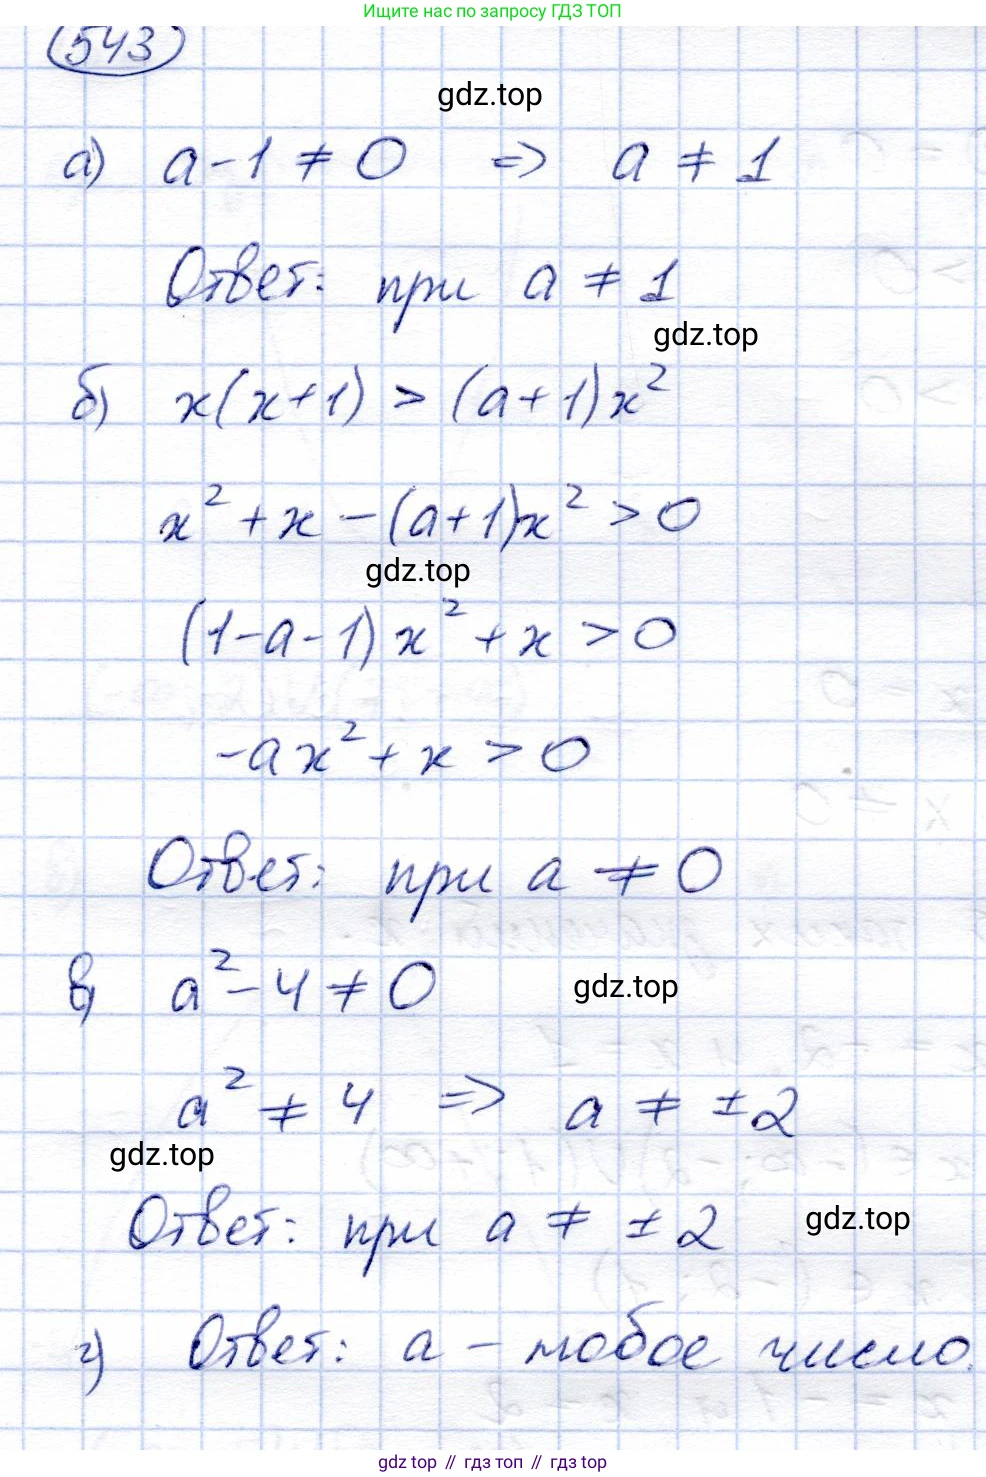 Ищите нас по запросу ГДЗ ТОП
543
gdz.top
а) a - 1 ≠ 0 => a ≠ 1
Ответ: при a ≠ 1
gdz.top
б) x(x+1) > (a+1)x²
x² + x - (a+1)x² > 0
gdz.top
(1-a-1)x² + x > 0
-ax² + x > 0
Ответ: при a ≠ 0
в) a² - 4 ≠ 0
gdz.top
a² ≠ 4 => a ≠ ±2
gdz.top
Ответ: при a ≠ ±2
gdz.top
г) Ответ: a - любое число.
gdz.top // гдз топ // gdz top